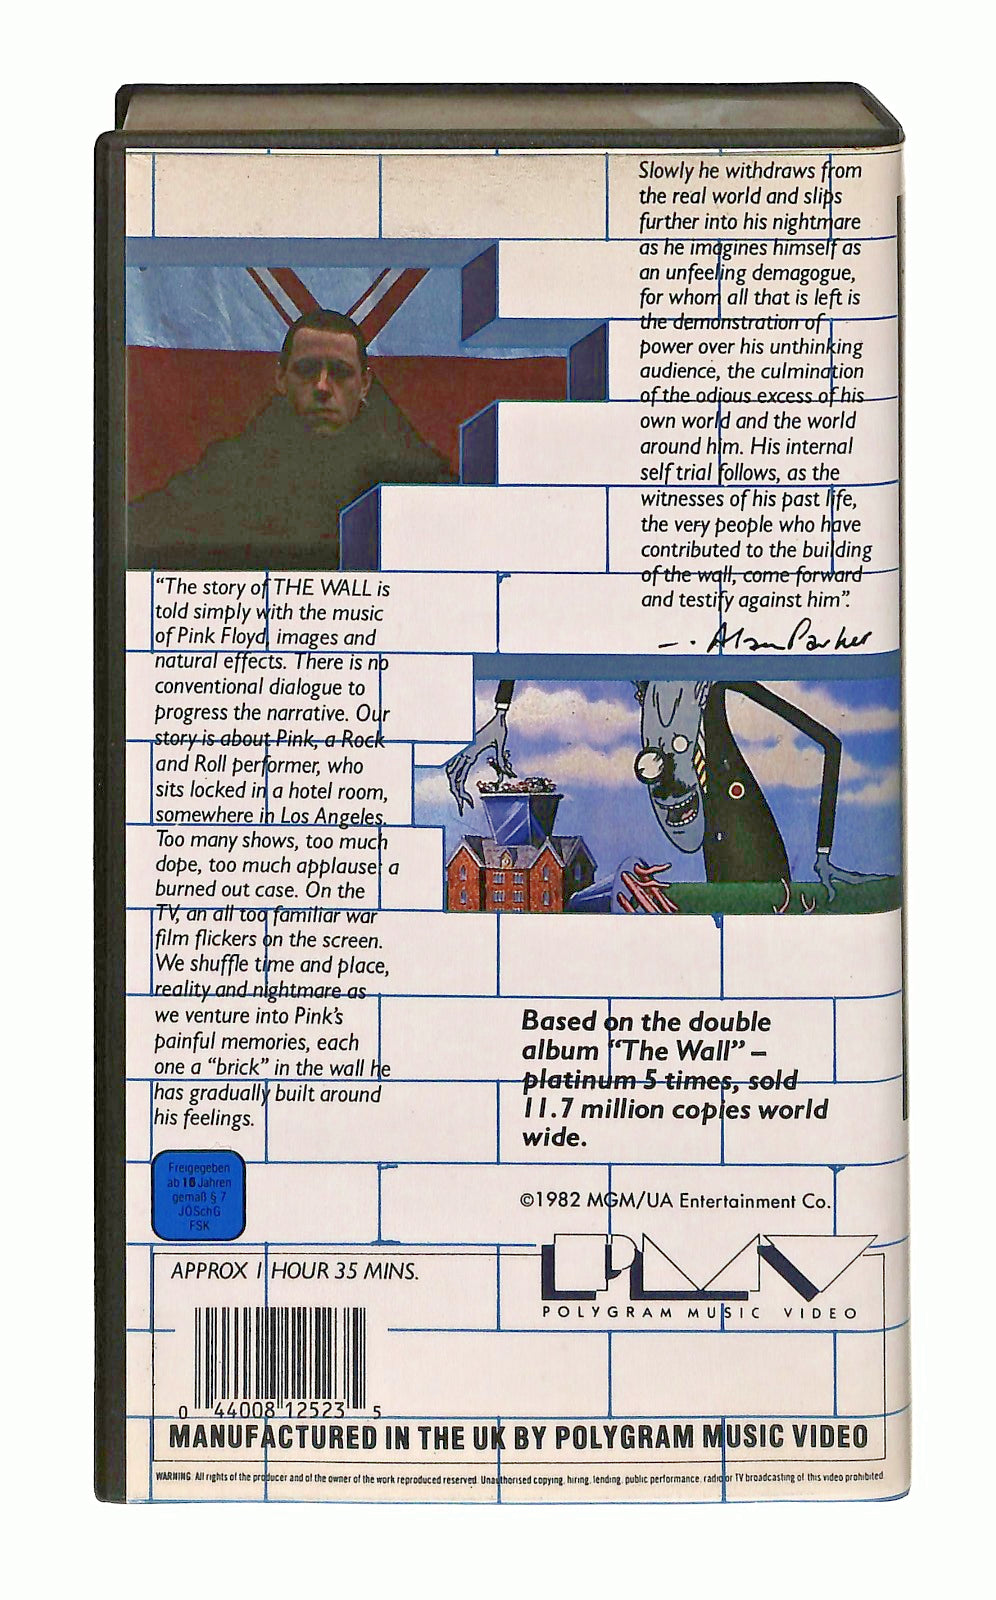 "The story of THE WALL is
told simply with the music
of Pink Floyd, images and
natural effects. There is no
conventional dialogue to
progress the narrative. Our
story is about Pink, a Rock
and Roll performer, who
sits locked in a hotel room,
somewhere in Los Angeles.
Too many shows, too much
dope, too much applause: a
burned out case. On the
TV, an all too familiar war
film flickers on the screen.
We shuffle time and place,
reality and nightmare as
we venture into Pink's
painful memories, each
one a "brick" in the wall he
has gradually built around
his feelings.
Slowly he withdraws from
the real world and slips
further into his nightmare
as he imagines himself as
an unfeeling demagogue,
for whom all that is left is
the demonstration of
power over his unthinking
audience, the culmination
of the odious excess of his
own world and the world
around him. His internal
self trial follows, as the
witnesses of his past life,
the very people who have
contributed to the building
of the wall, come forward
and testify against him".
—. Alan Parker
Based on the double
album "The Wall" –
platinum 5 times, sold
11.7 million copies world
wide.
Freigegeben
ab 16 Jahren
gemäß § 7
JÖSchG
FSK
©1982 MGM/UA Entertainment Co.
PMV
POLYGRAM MUSIC VIDEO
APPROX 1 HOUR 35 MINS.
0 44008 12523 5
MANUFACTURED IN THE UK BY POLYGRAM MUSIC VIDEO
WARNING. All rights of the producer and of the owner of the work reproduced reserved. Unauthorised copying, hiring, lending, public performance, radio or TV broadcasting of this video prohibited.